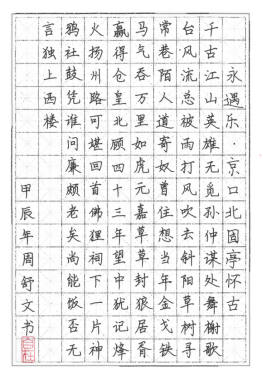 永遇乐·京口北固亭怀古
千古江山英雄无觅孙仲谋处舞榭歌
台风流总被雨打风吹去斜阳草树寻
常巷陌人道寄奴曾住想当年金戈铁
马气吞万里如虎元嘉草草封狼居胥
赢得仓皇北顾四十三年望中犹记烽
火扬州路可堪回首佛狸祠下一片神
鸦社鼓凭谁问廉颇老矣尚能饭否无
言独上西楼
甲辰年周舒文书